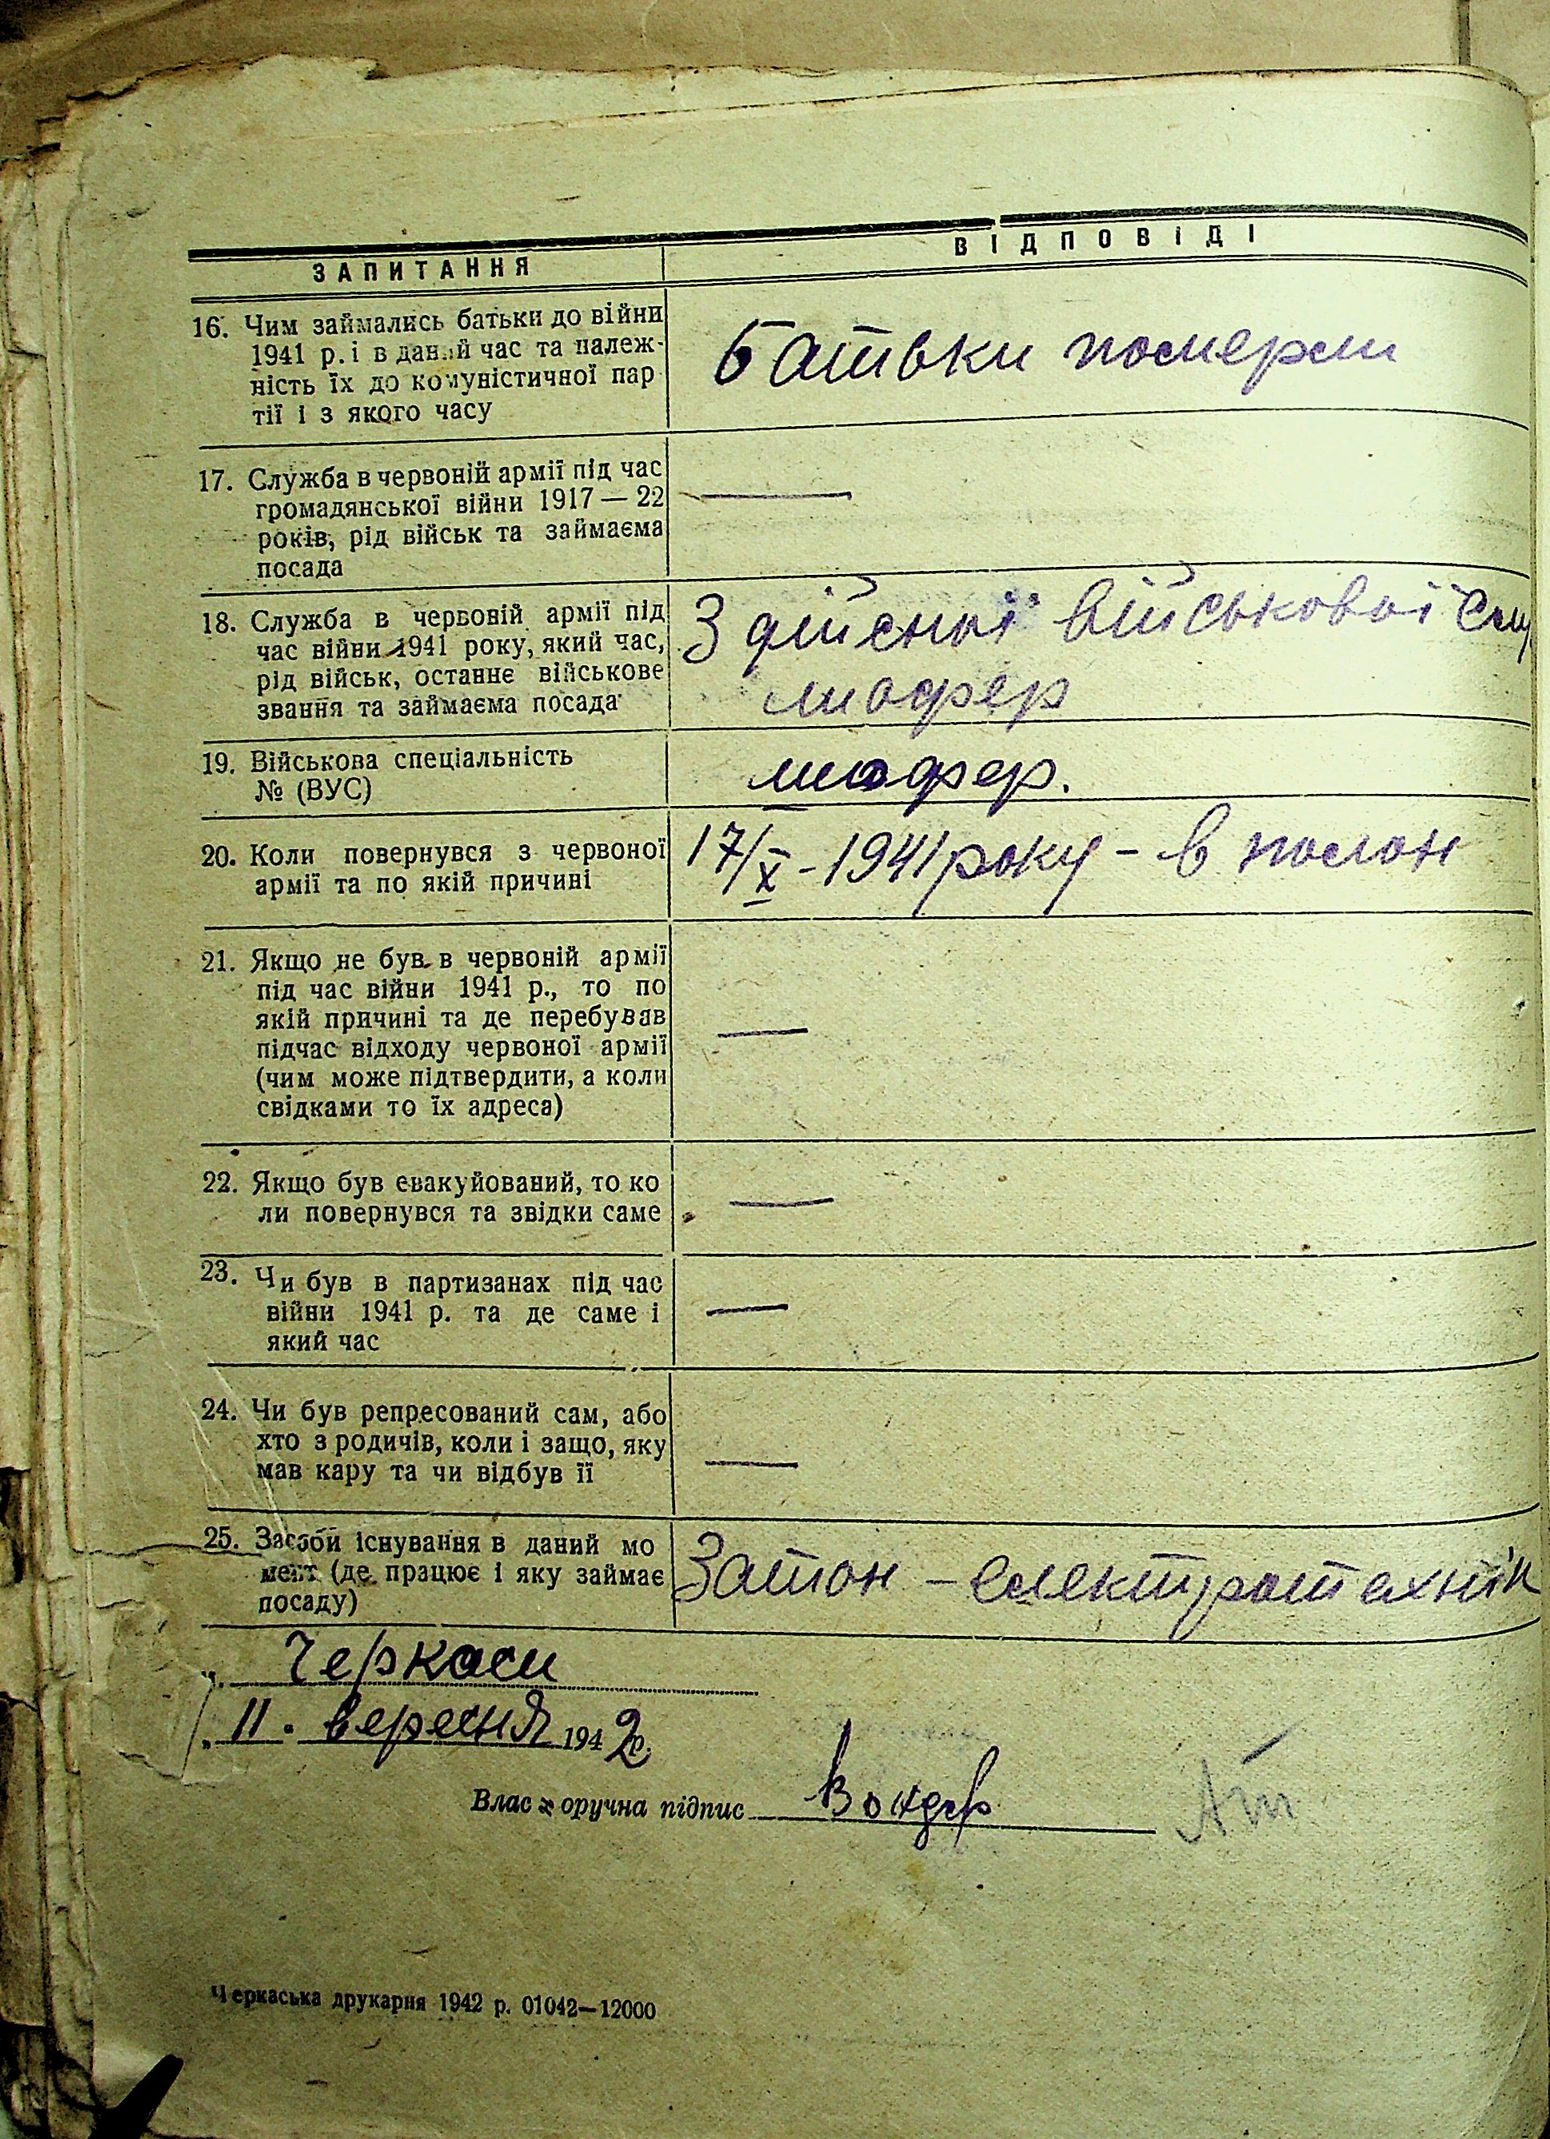 ЗАПИТАННЯ
ВІДПОВІДІ
16. Чим займались батьки до війни
1941 р. і в даний час та належ-
ність їх до комуністичної пар
тії і з якого часу
Батьки померли
17. Служба в червоній армії під час
громадянської війни 1917 — 22
років, рід військ та займаєма
посада
—
18. Служба в червоній армії під
час війни 1941 року, який час,
рід військ, останнє військове
звання та займаєма посада
З дійсної військової служ
шофер
19. Військова спеціальність
№ (ВУС)
шофер.
20. Коли повернувся з червоної
армії та по якій причині
17/X - 1941 року - в полон
21. Якщо не був в червоній армії
під час війни 1941 р., то по
якій причині та де перебував
підчас відходу червоної армії
(чим може підтвердити, а коли
свідками то їх адреса)
—
22. Якщо був евакуйований, то ко
ли повернувся та звідки саме
—
23. Чи був в партизанах під час
війни 1941 р. та де саме і
який час
—
24. Чи був репресований сам, або
хто з родичів, коли і защо, яку
мав кару та чи відбув її
—
25. Засоби існування в даний мо
мент (де працює і яку займає
посаду)
Затон - електротехнік
„ Черкаси
„ 11 . вересня 1942 р.
Власноручна підпис Вондар
Черкаська друкарня 1942 р. 01042—12000